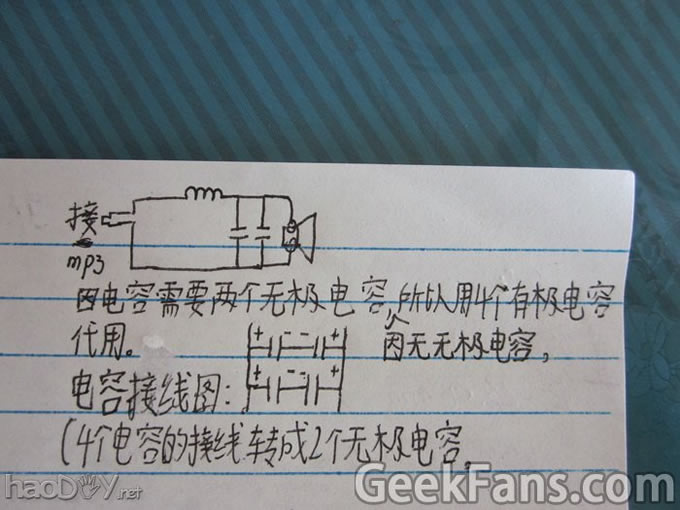 接
mp3
因电容需要两个无极电容,所以用4个有极电容
因无无极电容,
代用。
+ - - +
+ - - +
电容接线图:
(4个电容的接线转成2个无极电容。
haoDIY.net
GeekFans.com